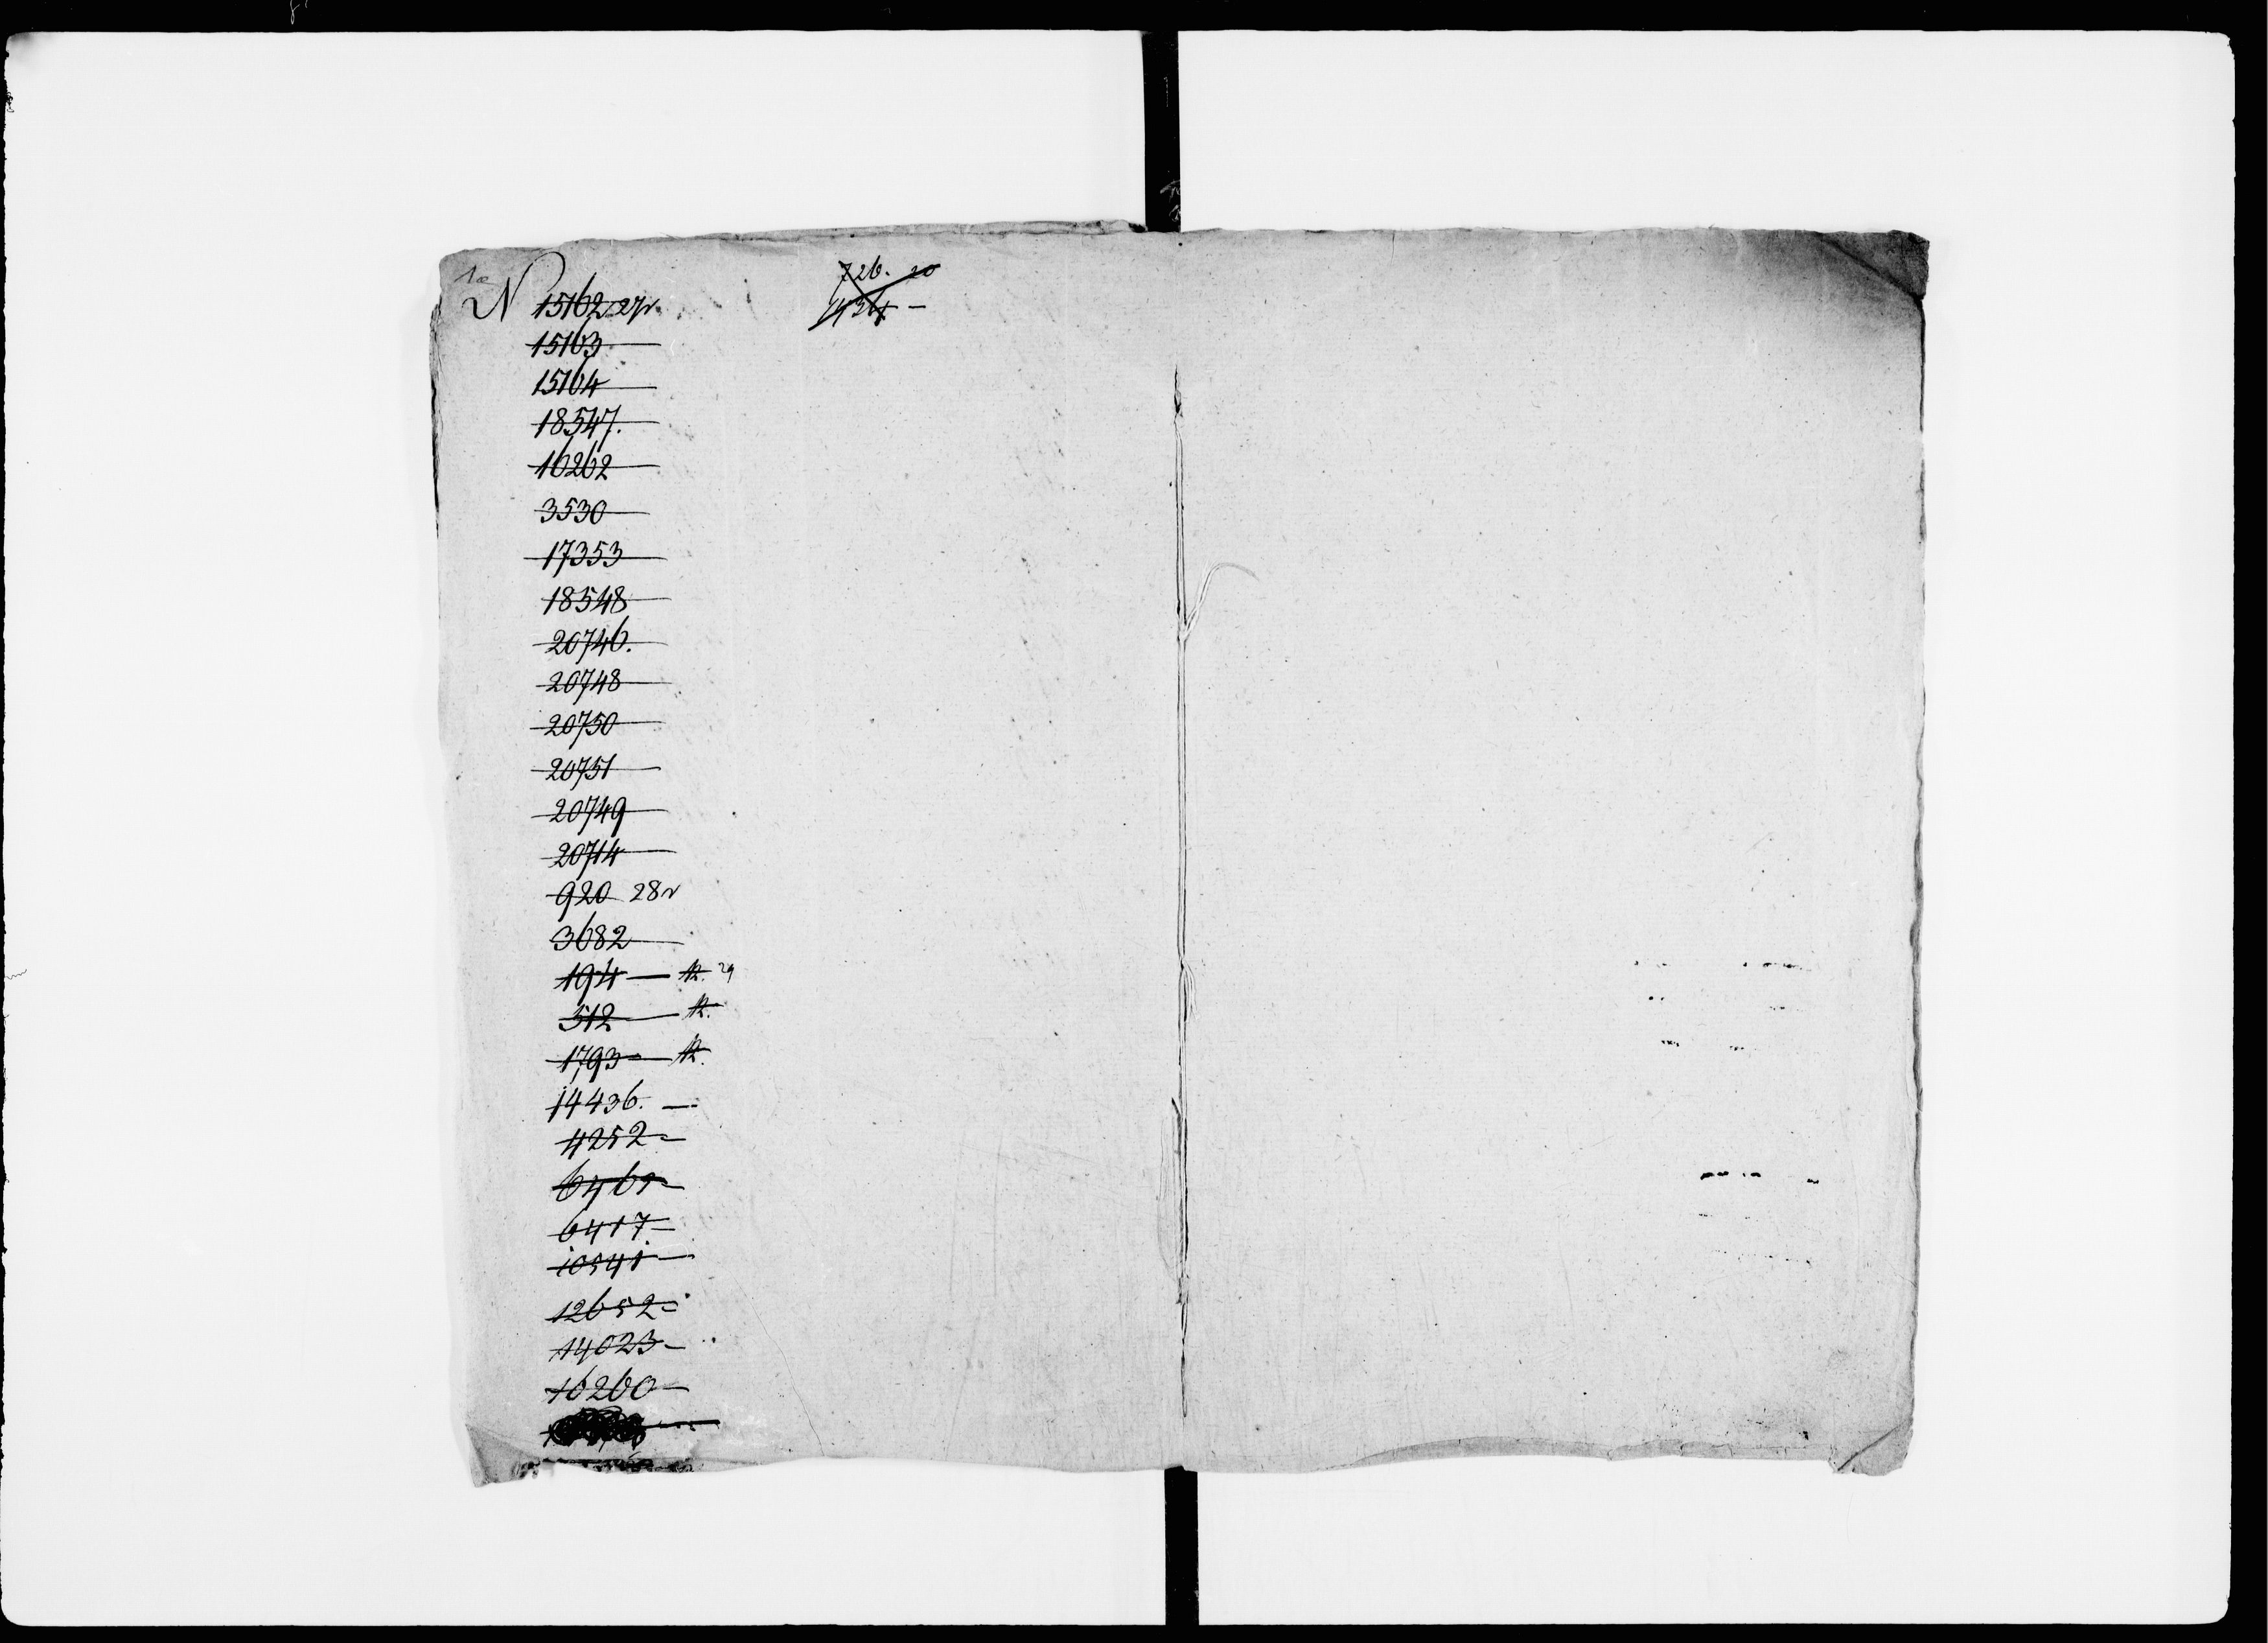 N 15162 27г.
15163
15164
18547.
16262
3530
17353
18548
20746.
20748
20750
20751
20749
20714
920 28г
3682
194 — 12. 29
512 — 12.
1793 — 12.
14436. —
4252 -
6417 -
10541 -
12652 -
14023 -
16260 -
726. 20